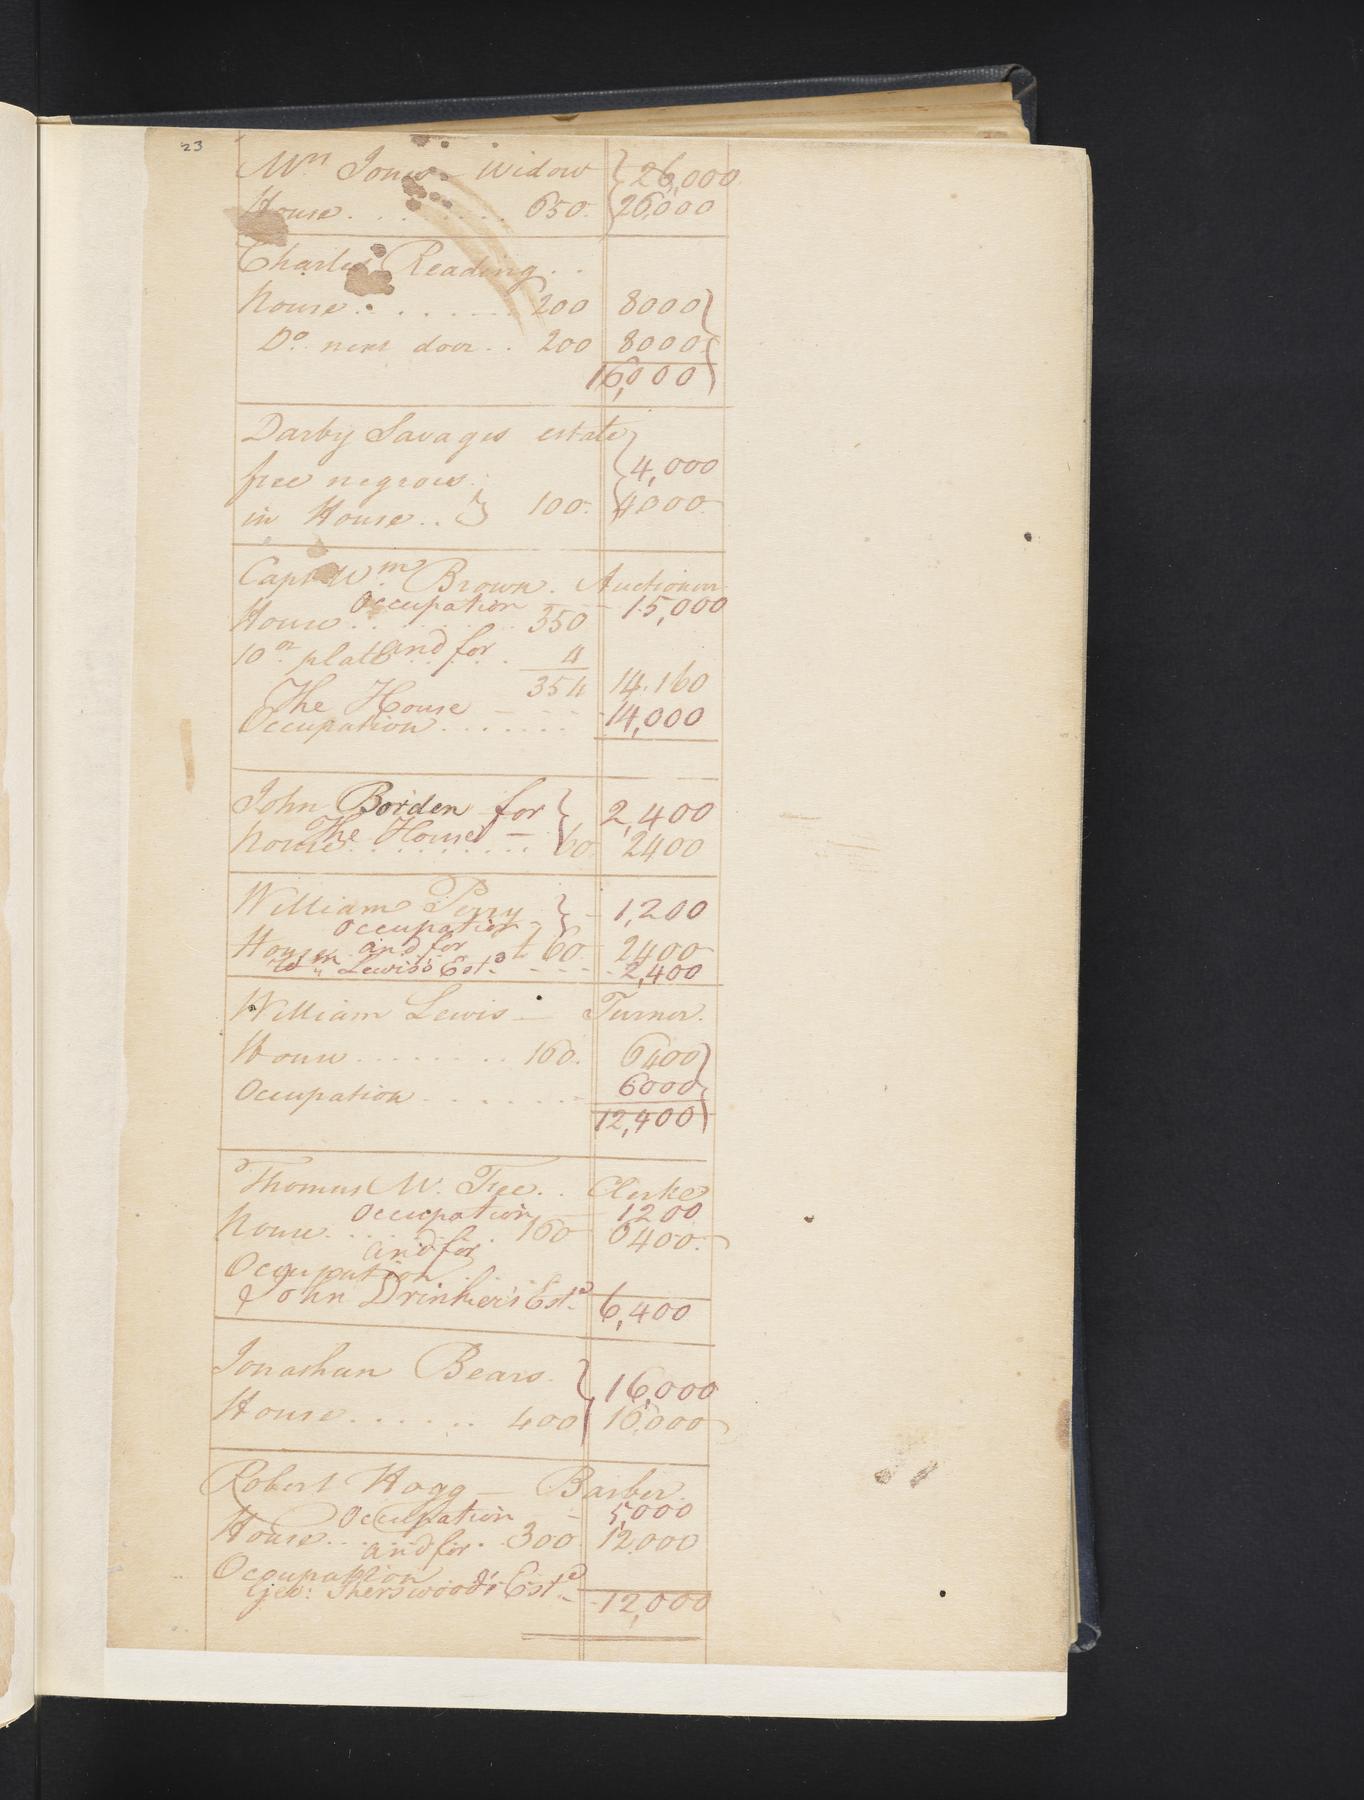 23
Mrs Jones - Widow } 26,000
House . . . . . . . 650. 26,000
Charles Reading . .
House . . . . . . . 200 8000
Do. next door . . 200 8000
16,000
Darby Savages estate
free negroes . 4,000
in House . . } 100. 4000.
Capt. Wm. Brown. Auctioneer
Occupation - 15,000
House . . . . . . . 350
10 oz. plate . . . . 4
and for
354 14.160
The House - - - - 14,000
Occupation . . . . . . .
John Borden for } 2,400
The House -
House . . . . . . . . . 60. 2400
William Perry } - 1,200
Occupation -
House £ 60 2400
and for
Wm Lewis's Estd - - - - 2,400
William Lewis — Turner.
House . . . . . . . . 160. 6400
Occupation . . . . . . . . 6000
12,400
Thomas W. Tree . . Clerke
Occupation - 1200
House . . . . . . . 160 6400.
and for
Occupation . .
John Drinker's Estd. 6,400
Jonathan Bears. } 16,000
House . . . . . . 400 16,000
Robert Hogg — Barber.
Occupation - 5,000
House . . . . . . . 300 12.000
and for
Occupation
Geo: Sherswood's Estd. - 12,000